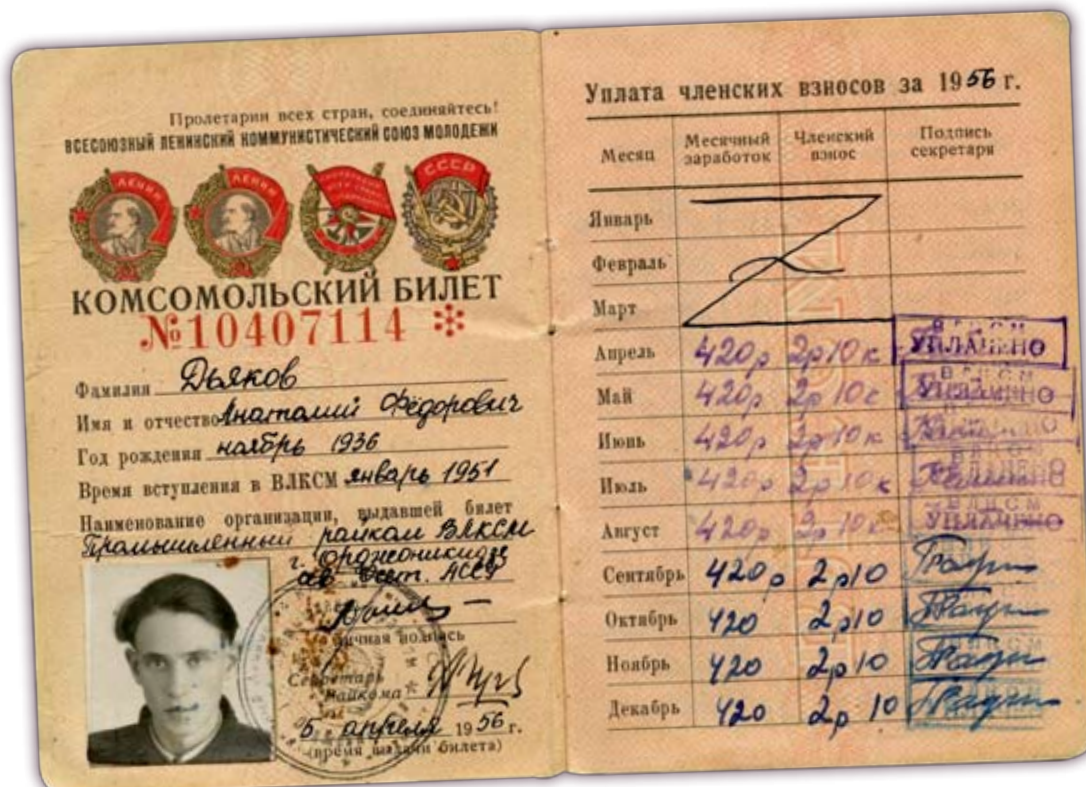 Пролетарии всех стран, соединяйтесь!
ВСЕСОЮЗНЫЙ ЛЕНИНСКИЙ КОММУНИСТИЧЕСКИЙ СОЮЗ МОЛОДЕЖИ
ЛЕНИН ЛЕНИН СССР
КОМСОМОЛЬСКИЙ БИЛЕТ
№10407114
Фамилия Дьяков
Имя и отчество Анатолий Фёдорович
Год рождения ноябрь 1936
Время вступления в ВЛКСМ январь 1951
Наименование организации, выдавшей билет
Промышленный райком ВЛКСМ
г. Орджоникидзе
Сев. Осет. АССР
Личная подпись
Секретарь
райкома
5 апреля 1956 г.
(время выдачи билета)
Уплата членских взносов за 1956 г.
Месяц Месячный заработок Членский взнос Подпись секретаря
Январь
Февраль
Март
Апрель 420р 2р10к ВЛКСМ УПЛАЧЕНО
Май 420р 2р10к ВЛКСМ УПЛАЧЕНО
Июнь 420р 2р10к УПЛАЧЕНО
Июль 420р 2р10к ВЛКСМ УПЛАЧЕНО
Август 420р 2р10к ВЛКСМ УПЛАЧЕНО
Сентябрь 420р 2р10
Октябрь 420 2р10
Ноябрь 420 2р10
Декабрь 420 2р 10